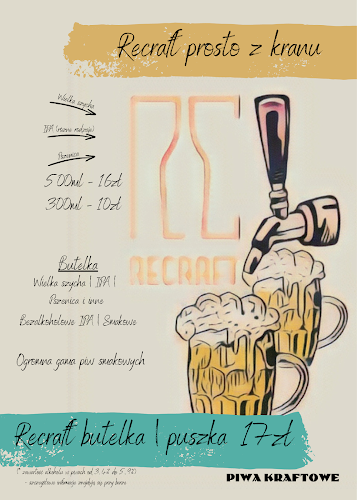 Recraft prosto z kranu
Wielka szycha
IPA (różne rodzaje)
Pszenica
500ml - 16zł
300ml - 10zł
RECRAFT
Butelka
Wielka szycha | IPA |
Pszenica i inne
Bezalkoholowe IPA | Smakowe
Ogromna gama piw smakowych
Recraft butelka | puszka 17zł
* zawartość alkoholu w piwach od 3,6% do 5,9%
szczegółowe informacje znajdują się przy barze
PIWA KRAFTOWE